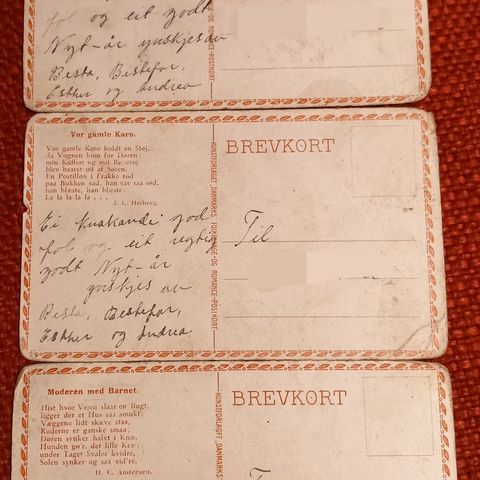 jol og eit godt
Nytt-år ynskjes av
Besta, Bestefar,
Esther og Andrea
Vor gamle Karo.
Vor gamle Karo holdt en Støj,
da Vognen kom for Døren;
min Kuffert og mit Rejsetøj
blev baaret ud af Søren.
En Postillon i Frakke rød
paa Bukken sad, han var saa sød,
han blæste, han blæste:
La la la la la . . .
J. L. Heiberg.
Ei knakande god
jol og eit rigtig
godt Nytt-år
ynskjes av
Besta, Bestefar,
Esther og Andrea.
KUNSTFORLAGET DANMARKS FOLKEVISE- OG ROMANCE-POSTKORT
BREVKORT
Til
Moderen med Barnet.
Hist hvor Vejen slaar en Bugt,
ligger der et Hus saa smukt,
Væggene lidt skæve staa,
Ruderne er ganske smaa;
Døren synker halvt i Knæ,
Hunden gør, det lille Kræ;
under Taget Svaler kvidre,
Solen synker og saa vid're.
H. C. Andersen.
KUNSTFORLAGET DANMARKS
BREVKORT